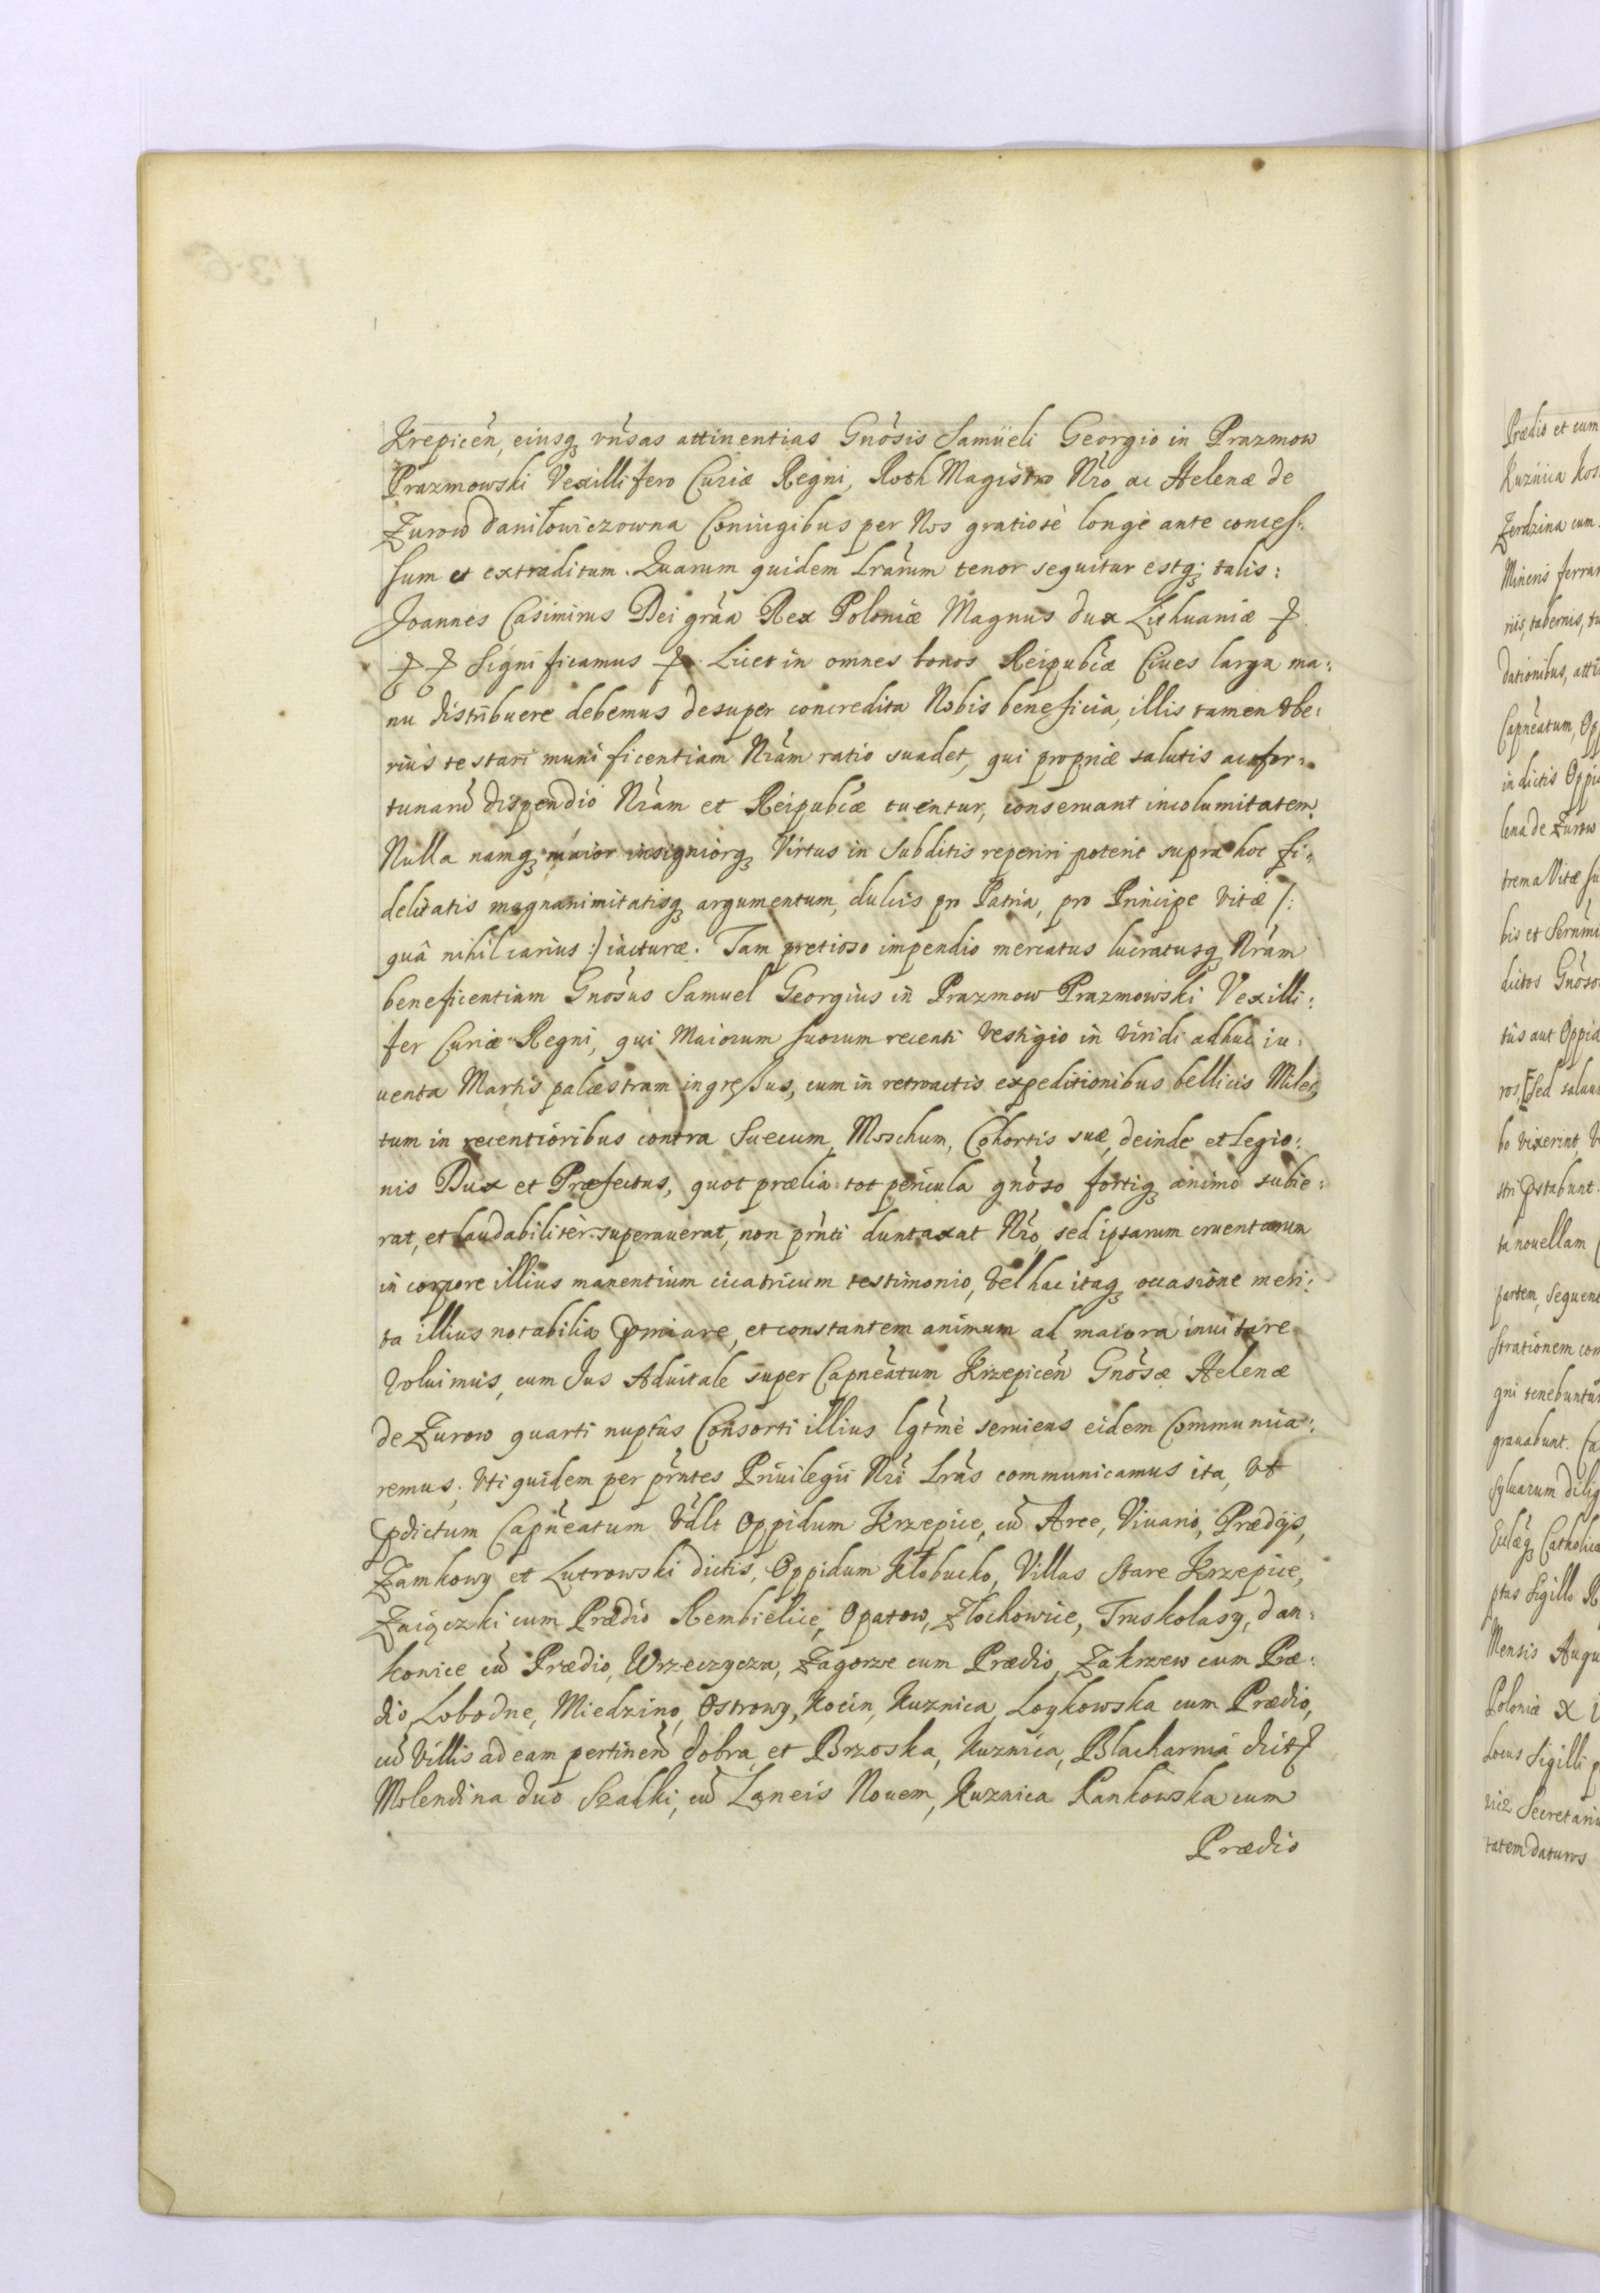 Krepicen̄, eiusq; vn̄sas attinentias Gnōsis Samüeli Georgio in Prazmow
Prazmowski Vexillifero Curiæ Regni, Roth Magistro Nr̄o ac Helenæ de
Zurow Daniłowiczowna Coniugibus per Nos gratiosè longè ante conces:
sum et extraditum. Quarum quidem Lrārum tenor sequitur estq; talis:
Joannes Casimirus Dei grāa Rex Poloniæ Magnus Dux Lithuaniæ
Significamus Licet in omnes bonos Reipubcæ Ciues larga ma:
nu distribuere debemus desuper concredita Nobis beneficia, illis tamen Vbe:
rius testari munificentiam Nr̄am ratio suadet, qui propriæ salutis ac for:
tunarū dispendio Nr̄am et Reipubcæ tuentur, conseruant incolumitatem.
Nulla namq; maior insigniorq; Virtus in Subditis reperiri poterit supra hoc fi:
delitatis magnanimitatisq; argumentum, dulcis pro Patria, pro Principe vitæ /:
quâ nihil carius :/ iacturæ. Tam pretioso impendio mercatus lucratusq; Nr̄am
beneficentiam Gnōsus Samuel Georgius in Prazmow Prazmowski Vexilli:
fer Curiæ Regni, qui Maiorum suorum recenti Vestigio in Viridi adhuc iu:
uenta Martis palæstram ingressus, cum in retroactis expeditionibus bellicis Miles,
tum in recentioribus contra Suecum, Moschum, Cohortis suæ, deinde et legio:
nis Dux et Præfectus, quot prælia tot pericula gnōso fortiq; animo subie:
rat, et laudabilitèr superauerat, non pn̄ti duntaxat Nr̄o, sed ipsarum cruentarum
in corpore illius manentium cicatricum testimonio, Vel hac itaq; occasione meri:
ta illius notabilia pmiare, et constantem animum ad maiora inuitare
Voluimus, cum Jus Aduitale super Capnēatum Krzepicen̄ Gnōsæ Helenæ
de Zurow quarti nuptûs Consorti illius lgtm̄è seruiens eidem Communica:
remus. Vti quidem per pn̄tes Priuilegii Nr̄i Lrās communicamus ita, Vt
pdictum Capnēatum Vdlt Oppidum Krzepice, cū Arce, Viuario, Prædijs,
Zamkowy et Lutrowski dictis, Oppidum Kłobucko, Villas Stare Krzepice,
Zaięczki cum Prædio Rembielice, Opatow, Złochowice, Truskolasy, Dan:
kowice cū Prædio, Wrzeczycza, Zagorze cum Prædio, Zakrzew cum Præ:
dio, Lobodne, Miedzino, Ostrowy, Kocin, Kuznica, Loykowska cum Prædio,
cū Villis ad eam pertinen̄ Dobra et Brzoska, Kuznica, Blacharnia dict
Molendina duo Szadki, cū Laneis Nouem, Kuznica Pankowska cum
Prædio
Prædio et cum
Kuznica Kos
Zerdzina cum
Mineris ferrar
riis, tabernis, tu
dationibus, atti
Capnēatum, Op
in dictis Oppi
lena de Zurow
trema Vitæ su
bis et Sern̄mi
dictos Gnōso
tûs aut Oppid
ros, Sed saluu
bo vixerint, V
stri pstabunt.
ta nouellam
partem, sequen
strationem com
gni tenebuntur
grauabunt. Ca
syluarum dilig
Eclæq; Catholica
ptus Sigillo R
Mensis Augu
Poloniæ X
Locus Sigilli p
vicz Secretariu
tatem daturos